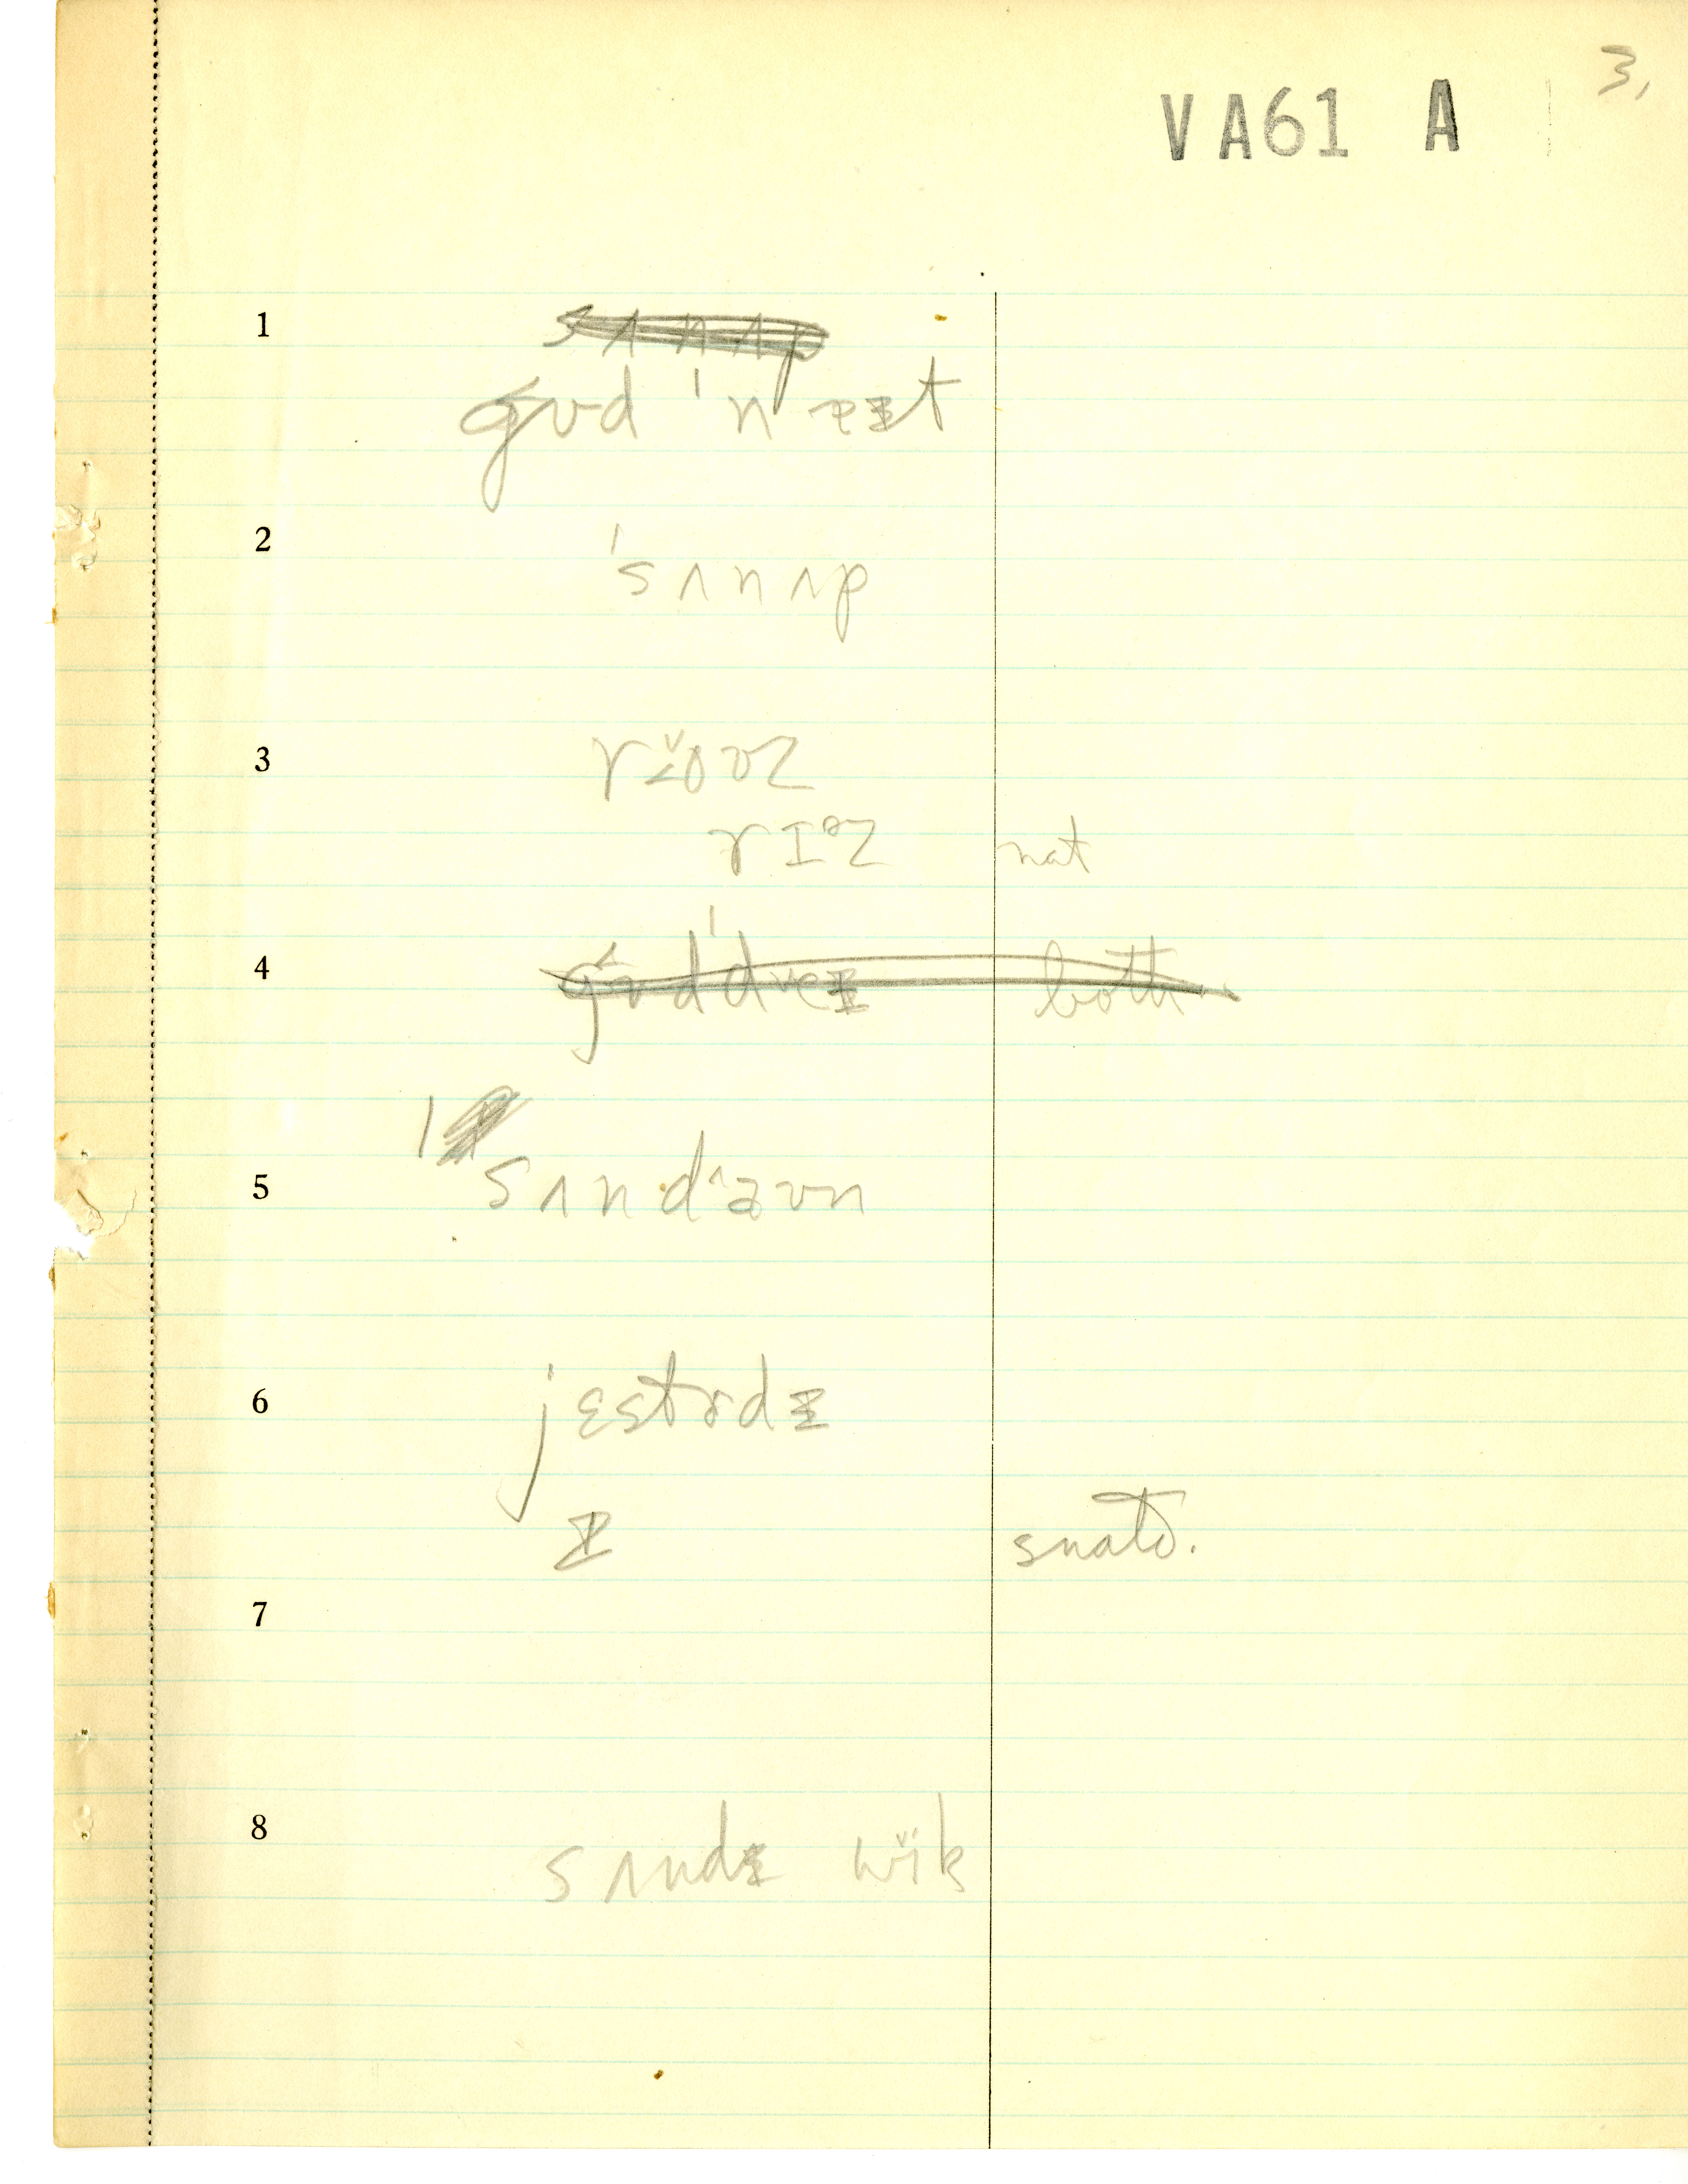 3,
VA61 A
1 sʌnʌp
gʊd ˈneɪt
2 ˈsʌnʌp
3
rɪᵊz nat
4 gʊdˈdeɪ both
5 sʌndaʊn
6 jɛstɚdɪ
ɪ snato.
7
8 sʌndɪ wĭk